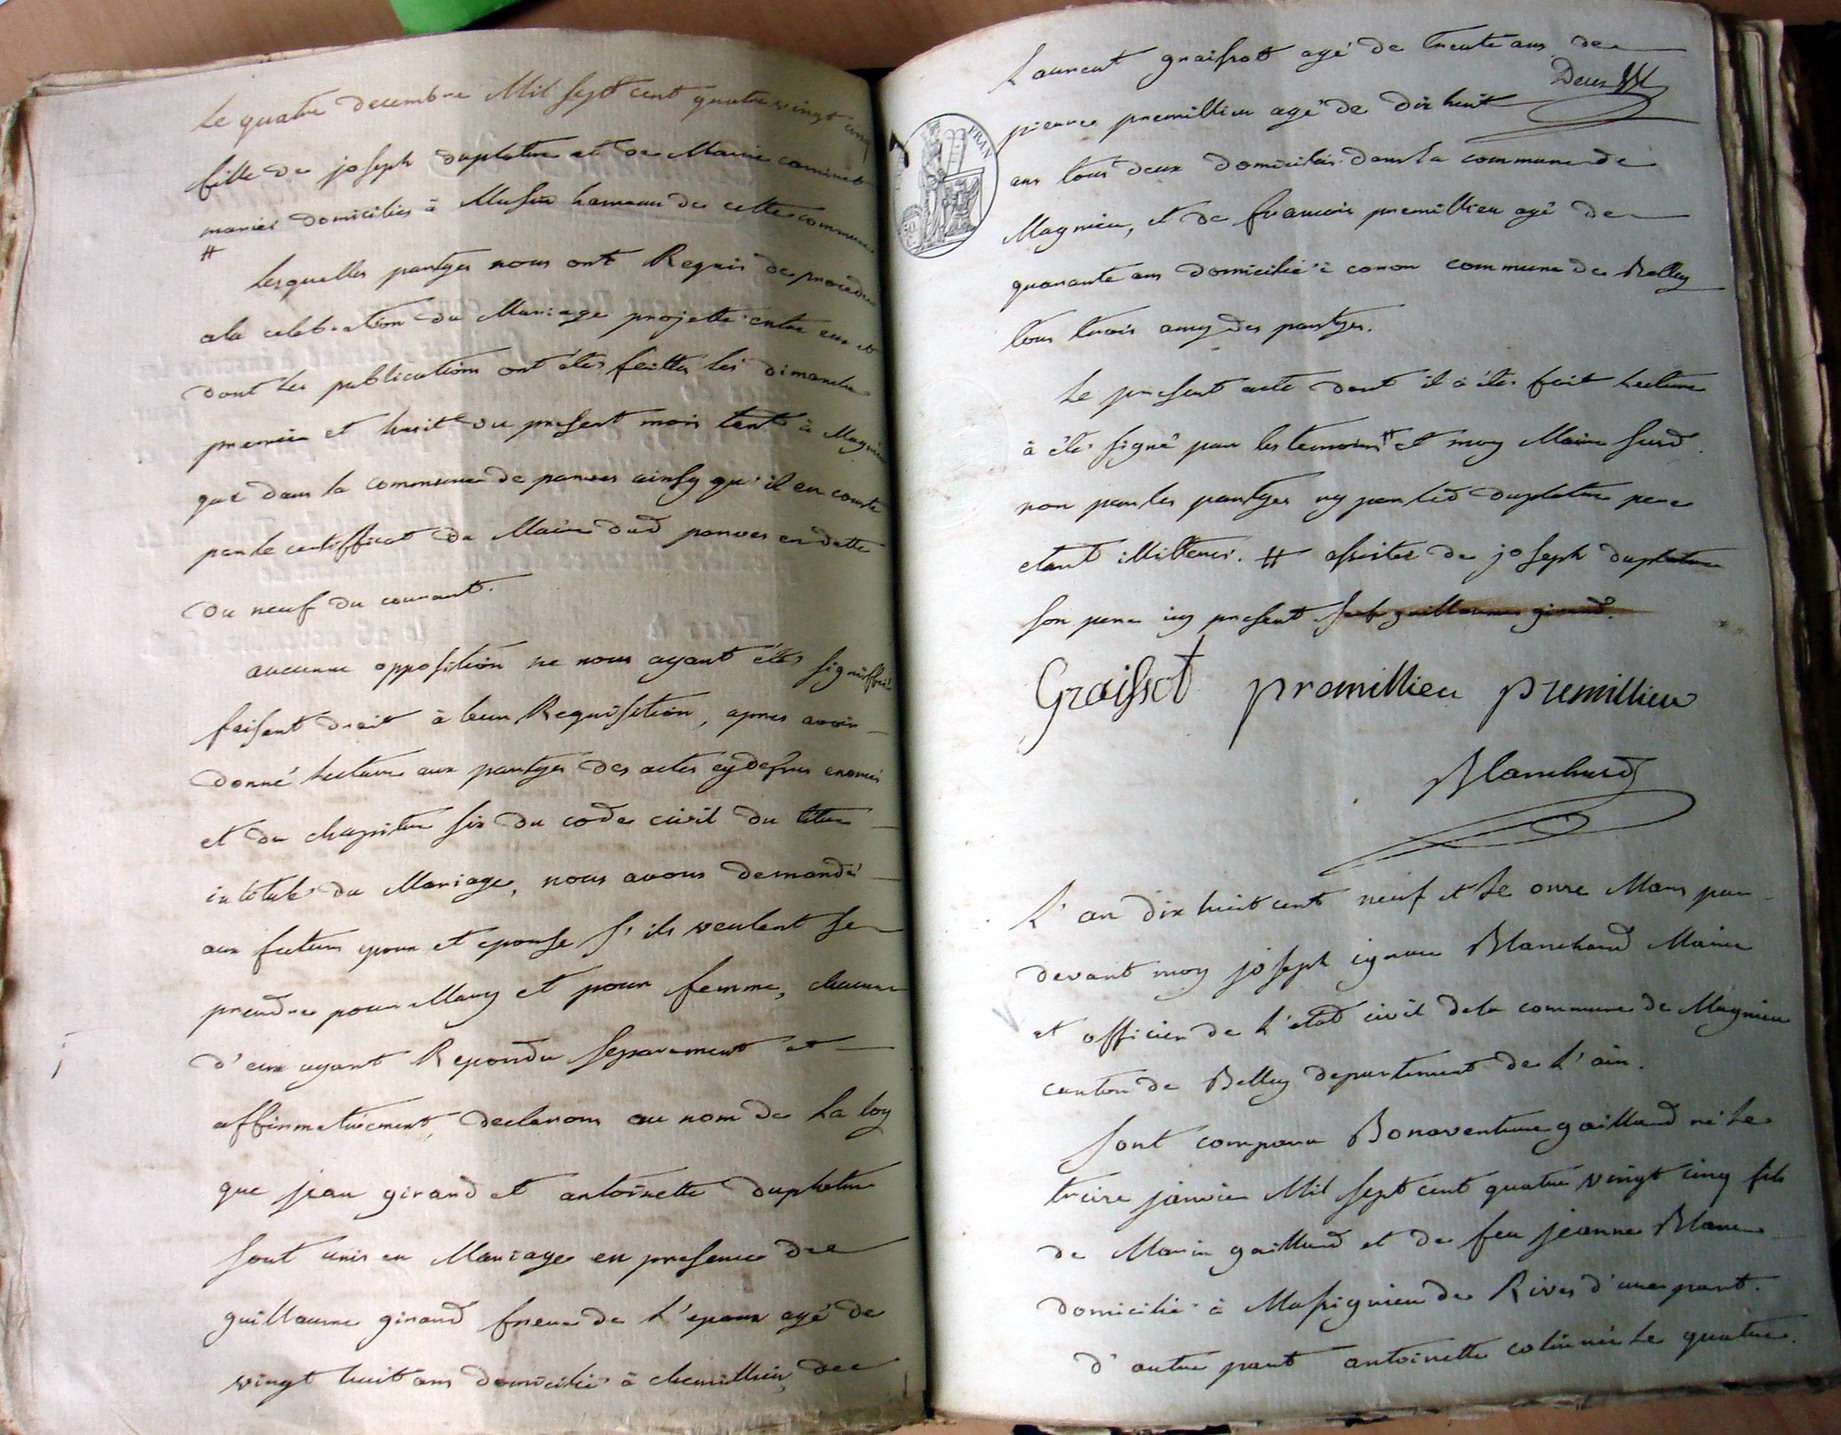 Le quatre decembre Mil sept cent quatre vingt cinq
fille de joseph duplatre et de Marie
mariés domiciliés à Musin hameau de cette commune
#
lesquelles partyes nous ont Requis de proceder
a la celebration du Mariage projetté entre eux et
dont les publications ont étés faittes les dimanche
premier et huit du present mois tant à Magnieu
que dans la commune de parves ainsy qu'il en conste
par le certifficat du Maire dud parves en datte
du neuf du courant.
aucunne opposition ne nous ayant étés signiffiée
faisant droit à leur Requisition, apres avoir
donné Lecture aux partyes des actes cy dessus enoncés
et du chapitre six du code civil du titre
intitulé du Mariage, nous avons demandé
aux futurs epoux et epouse s'ils veulent se
prendre pour Mary et pour femme, chacun
d'eux ayant Repondu separement et
affirmativement, declarons au nom de La loy
que jean girand et antoinette duplatre
sont unis en Mariage en presence de
guillaume girand frere de L'epoux agé de
vingt huit ans domicilié à chemillieu, de
Laurent graissot agé de trente ans de
Deux
pierre premillieu agé de dix huit
FRAN
ans tous deux domiciliés dans la commune de
Magnieu, et de francois premillieu agé de
quarante ans domicilié à coron commune de Belley
tous trois amy des partyes.
Le present acte dont il à étés fait Lecture
à étés signé par les temoins # et moy Maire susd.
non par les partyes ny par led duplatre pere
etant illiterés. # assistée de joseph duplatre
son pere icy present guillaume girand.
Graissot premillieu premillieu
Blanchard
L'an dix huit cent neuf et Le onze Mars par
devant moy joseph ignace Blanchard Maire
et officier de L'etat civil de la commune de Magnieu
canton de Belley departement de L'ain.
Sont comparu Bonaventure gaillard né Le
treize janvier Mil sept cent quatre vingt cinq fils
de Marin gaillard et de feu jeanne Blanc
domicilié à Massignieu de Rives d'une part.
d'autre part antoinette née Le quatre.